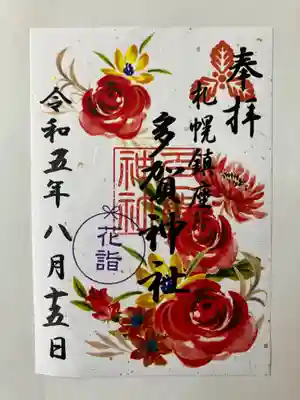 奉拝
札幌鎮座
多賀神社
花詣
令和五年八月十五日